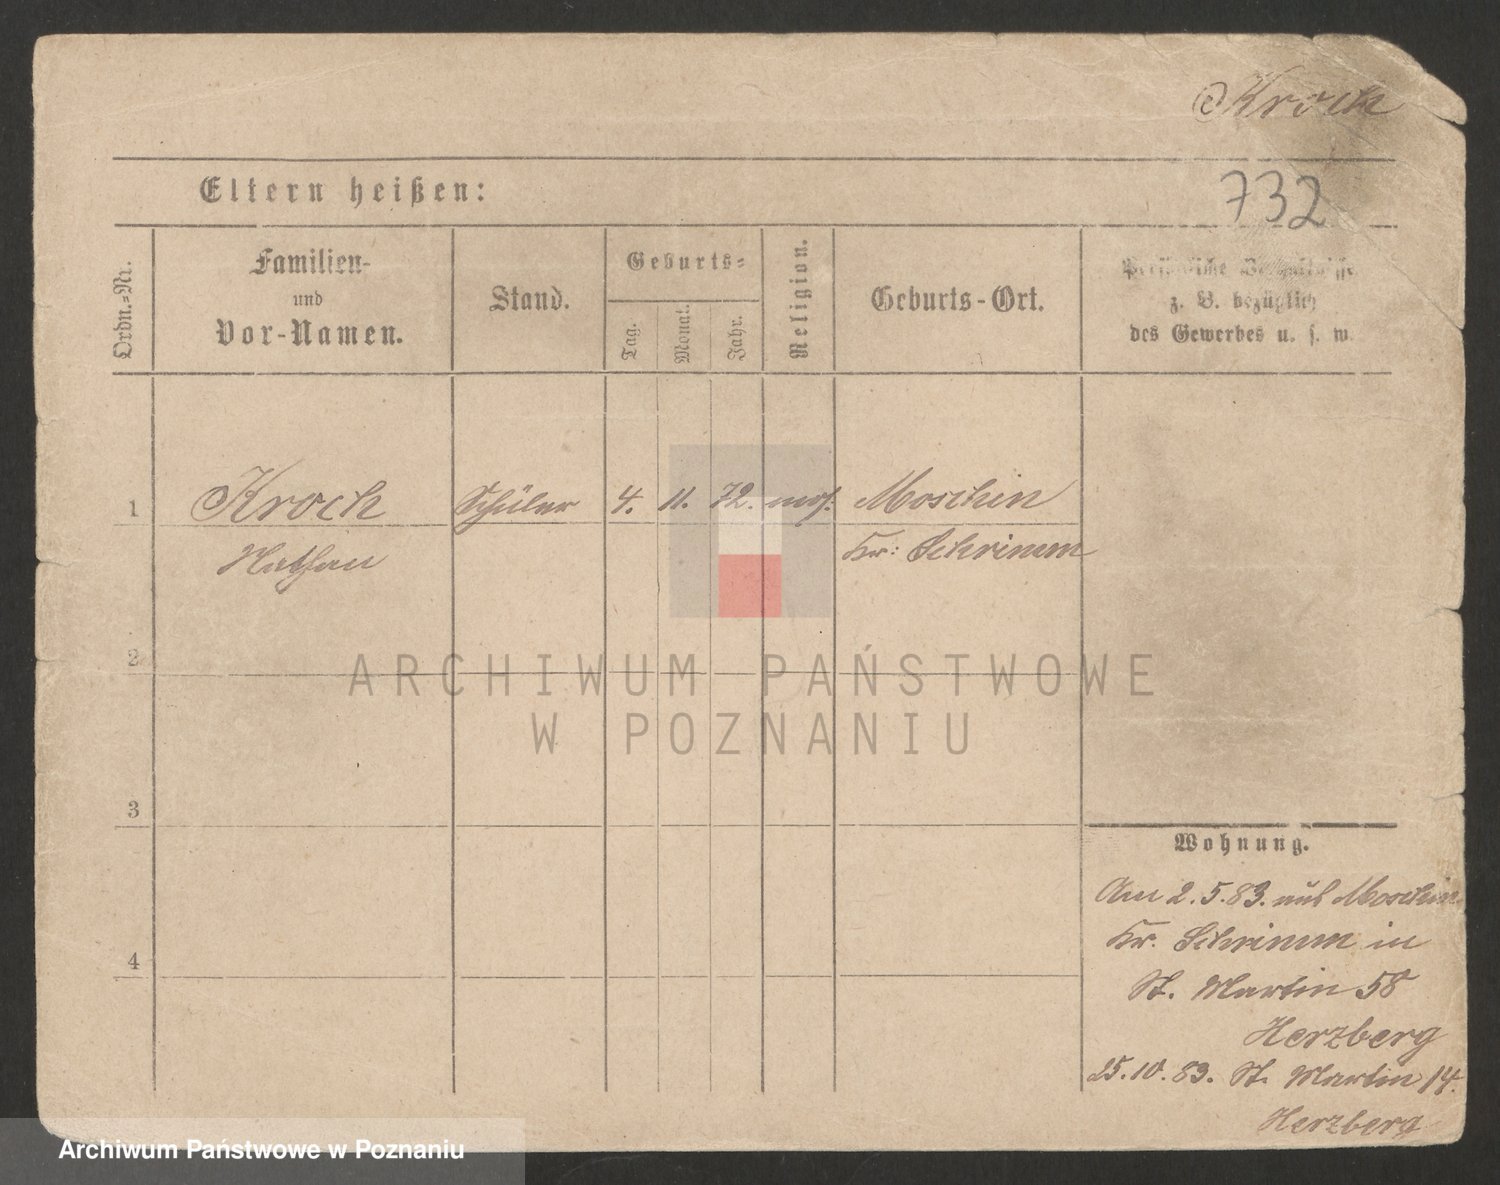 Kroch
732
Eltern heißen:
Ordn.=Nr.
Familien-
und
Vor-Namen.
Stand.
Geburts=
Tag.
Monat.
Jahr.
Religion.
Geburts-Ort.
Persönliche Verhältnisse
z. B. bezüglich
des Gewerbes u. s. w.
1
Kroch
Schüler
4.
11.
72.
mos.
Moschin
Nathan
Kr: Schrimm
2
3
4
Wohnung.
Am 2.5.83. aus Moschin
Kr. Schrimm in
St. Martin 58
Herzberg
25.10.83. St. Martin 14.
Herzberg
ARCHIWUM PAŃSTWOWE
W POZNANIU
Archiwum Państwowe w Poznaniu